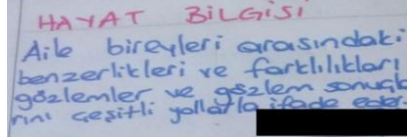 HAYAT BİLGİSİ
Aile bireyleri arasındaki
benzerlikleri ve farklılıkları
gözlemler ve gözlem sonuçla
rını çeşitli yollarla ifade eder.